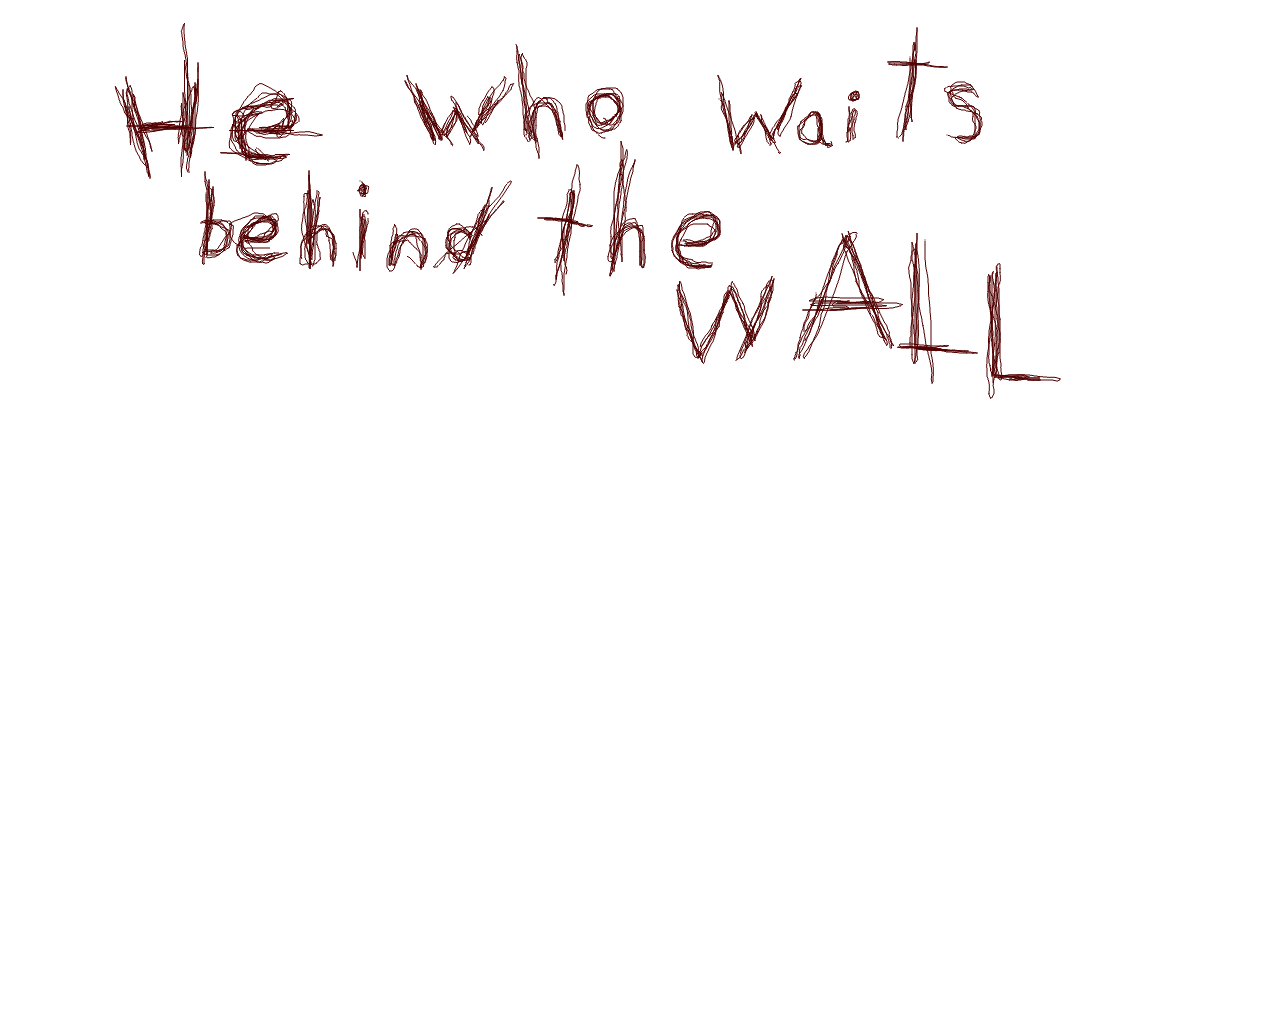 He who waits
behind the
WALL